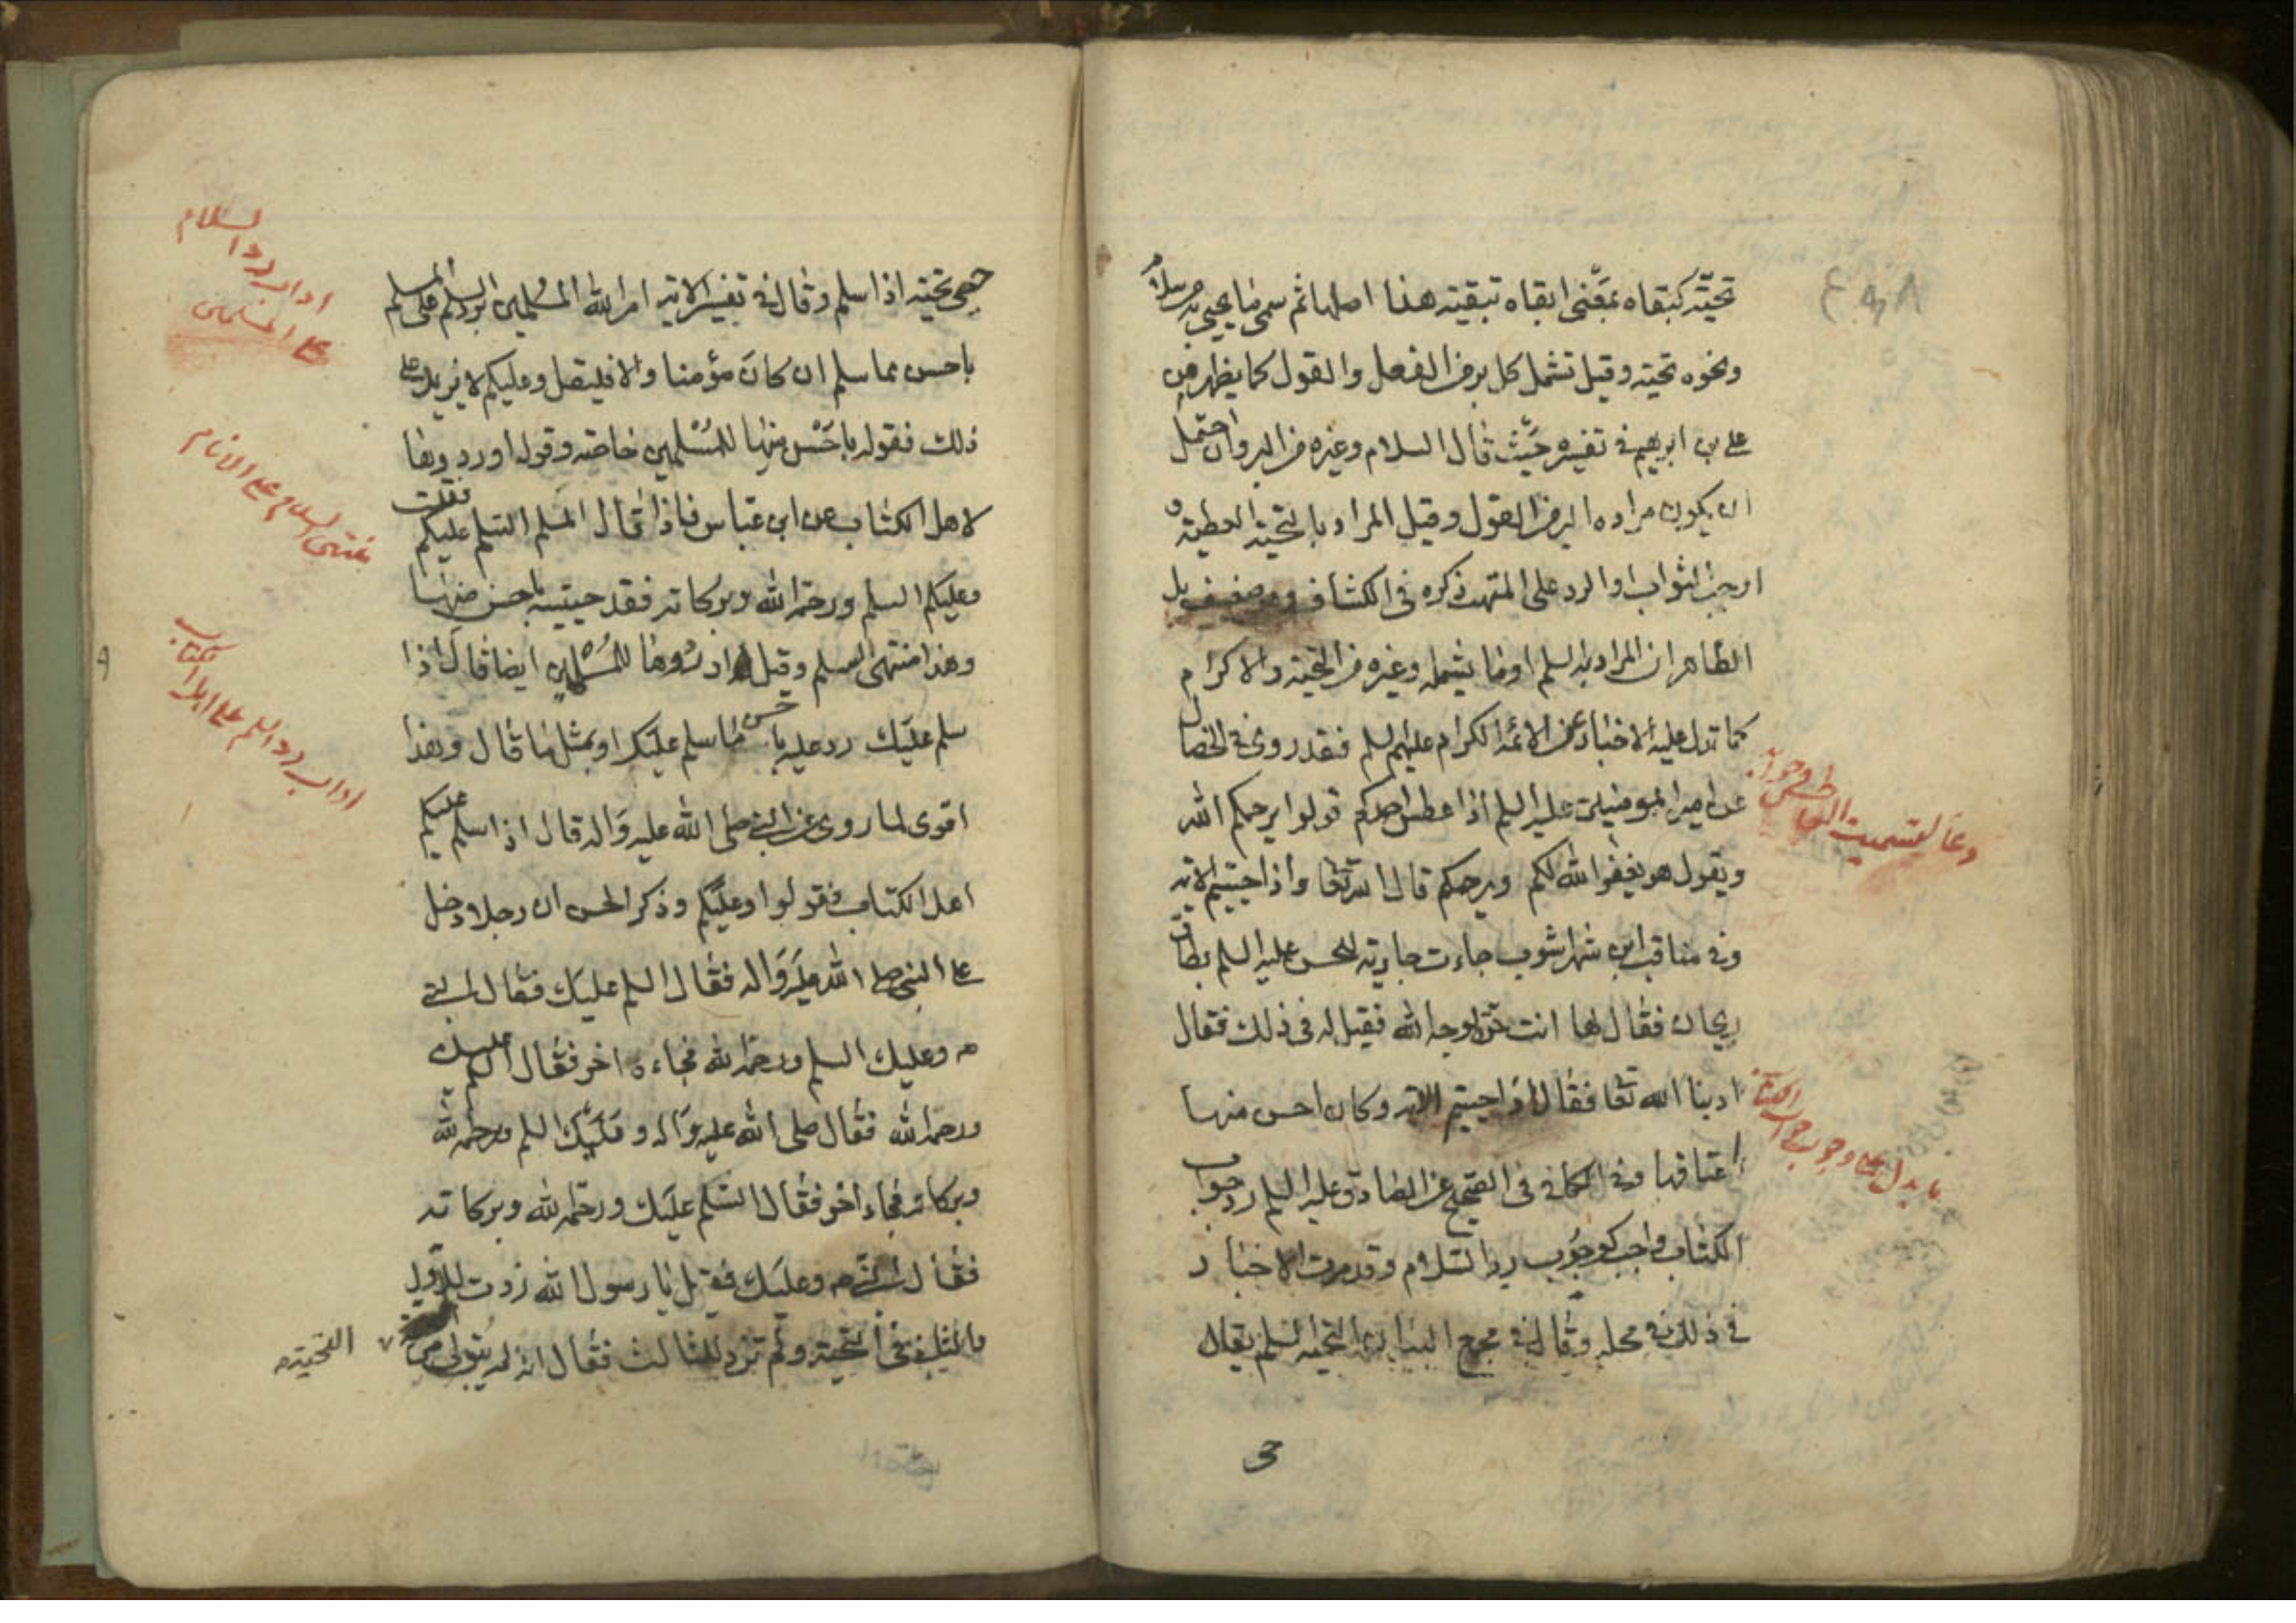 تحيّته كبقاه بمعنى ابقاه تبقيته هذا اصلها ثم سمى ما يحيى به من سلام
ونحوه تحية وقيل تشمل كل بر من الفعل والقول كما يظهر من
على بن ابرهيم فى تفسيره حيث قال السلام وغيره من البر وان احتمل
ان يكون مراده البر من القول وقيل المراد بالتحية العطية و
اوجب الثواب او الرد على المتهب ذكره فى الكشاف وهو ضعيف بل
الظاهر ان المراد به السلم او ما يشمله وغيره من التحية والاكرام
كما تدل عليه الاخبار عن الائمة الكرام عليهم السلم فقد روى فى الخصال
عن امير المومنين عليه السلم اذا عطس احدكم قولوا يرحمكم الله
ويقول هو يغفر الله لكم ويرحمكم قال الله تعا واذا حييتم الاية
وفى مناقب ابن شهراشوب جاءت جارية للحسن عليه السلم بطاق
ريحان فقال لها انت حرة لوجه الله فقيل له فى ذلك فقال
ادبنا الله تعا فقال اذا حييتم الاية وكان احسن منها
اعتاقها وفى الكافى فى الصحيح عن الصادق عليه السلم رد جواب
الكتاب واجب كوجوب رد السلام وقد مرت الاخبار
فى ذلك فى محله وقال فى مجمع البيان التحية السلم يقال
دعا لتسميت العاطس وجوابه
ما يدل على وجوب جواب الكتاب
3
حيى تحية اذا سلم وقال فى تفسير الاية امر الله المسلمين برد السلم على المسلم
باحسن مما سلم ان كان مؤمنا والا فليقل وعليكم لا يزيد على
ذلك فقوله باحسن منها للمسلمين خاصة وقوله او ردوها
لاهل الكتاب عن ابن عباس فاذا قال المسلم السلم عليكم فقلت
وعليكم السلم ورحمة الله وبركاته فقد حييته باحسن منها
وهذا منتهى السلم وقيل او ردوها للمسلمين ايضا قال اذا
سلم عليك رد عليه باحسن مما سلم عليك او بمثل ما قال وهذا
اقوى لما روى عن النبى صلى الله عليه واله قال اذا سلم عليكم
اهل الكتاب فقولوا وعليكم وذكر الحسن ان رجلا دخل
على النبى صلى الله عليه واله فقال السلم عليك فقال النبى
ص وعليك السلم ورحمة الله فجاءه اخر فقال السلم عليك
ورحمة الله فقال صلى الله عليه واله وعليك السلم ورحمة الله
وبركاته فجاء اخر فقال السلم عليك ورحمة الله وبركاته
فقال النبى ص وعليك فقيل يا رسول الله زدت للاول
والثانى فى التحية ولم تزد للثالث فقال انه لم يتولى من
التحية
اداب رد السلام
على المسلمين
منتهى السلام على الانام
اداب رد السلم على اهل الكتاب